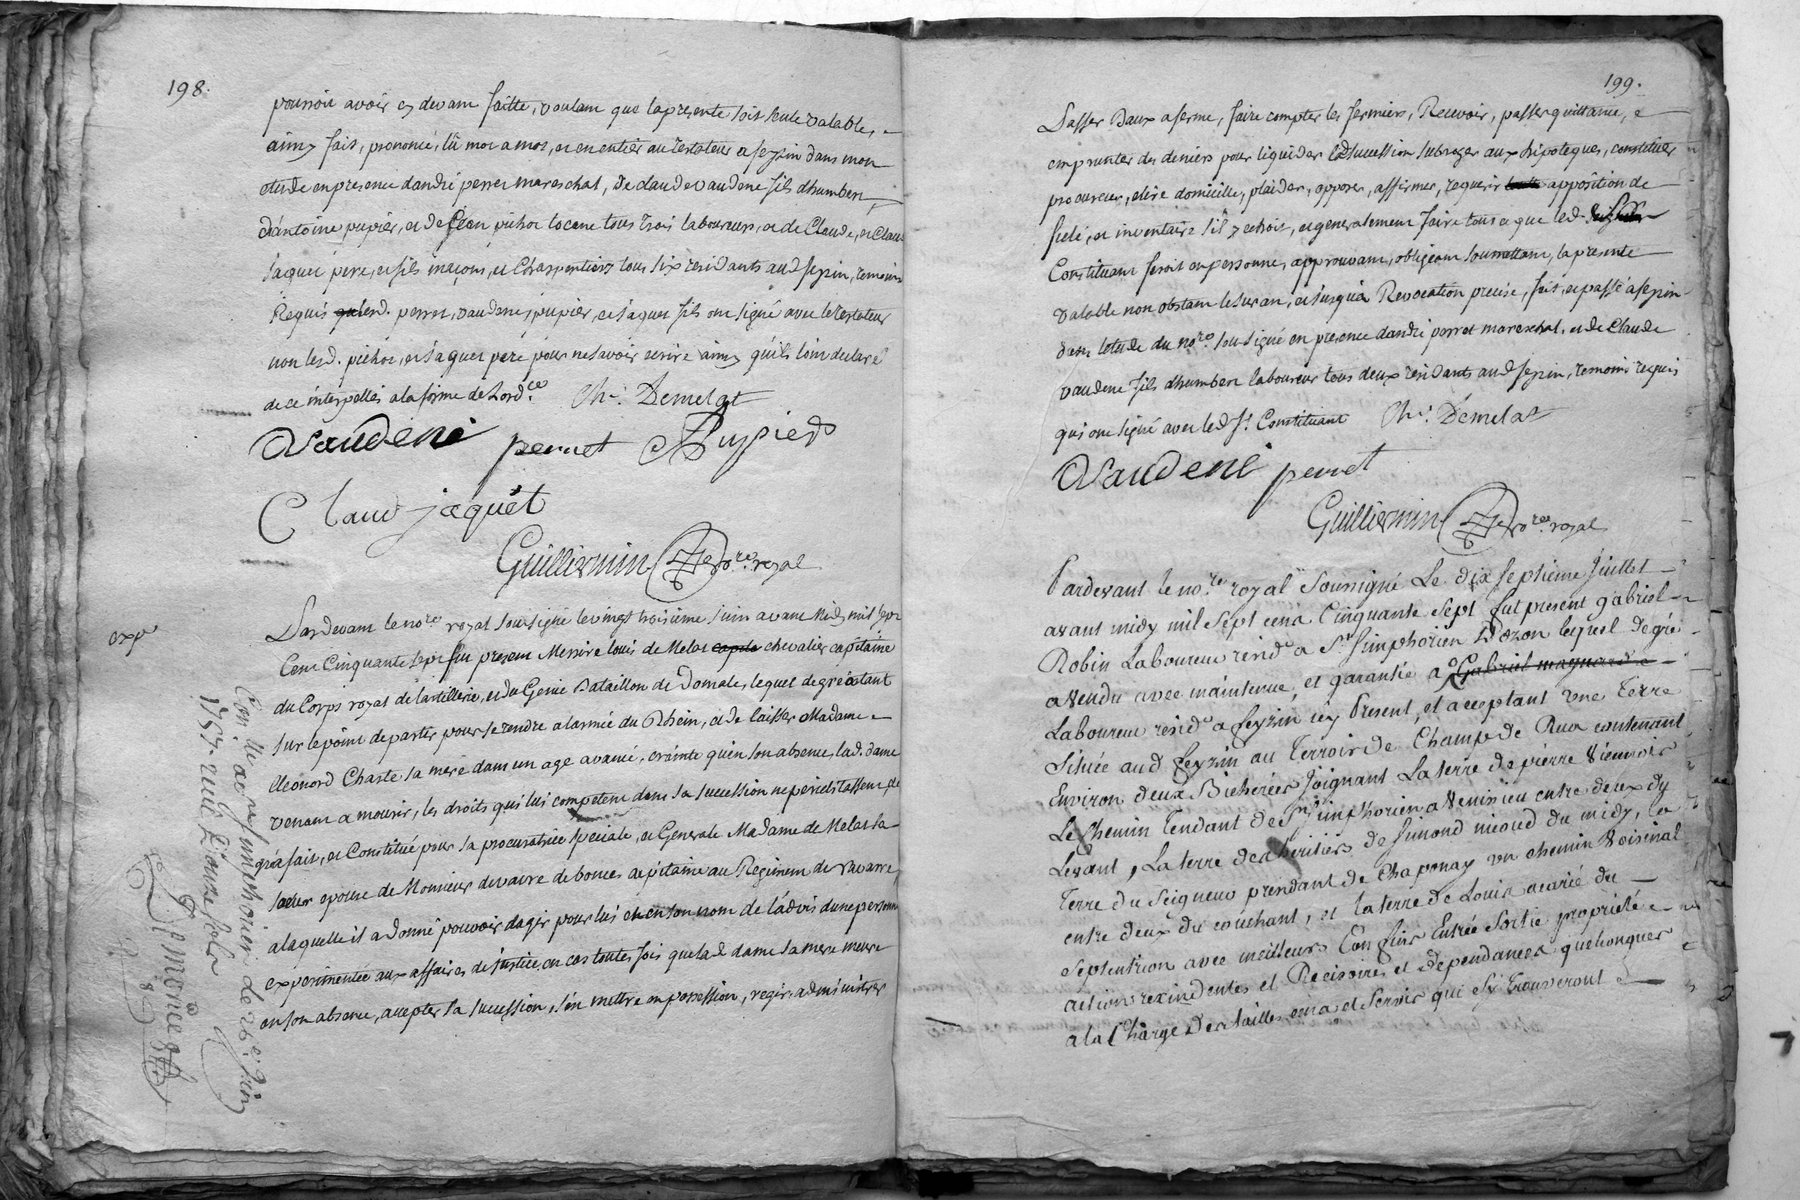 198.
pourroit avoir cy devant faitte, voulant que la presente soit seule valable,
ainsy fait, prononcé, lû mot a mot, et en entier au testateur a feyzin dans mon
etude en presence dandré perret mareschal, de claude vaudene fils dhumbert,
d'antoine pupier, et de jean pichot tocane tous trois laboureurs, et de Claude, et Claude
jaquet pere, et fils maçons, et Charpentiers tous six residants aud feyzin, temoins
Requis quiesd. perret, vaudene, pupier, et jaquet fils ont signé avec le testateur
non lesd. pichot, et jaquet pere pour ne savoir ecrire ainsy quils lont declaré
de ce interpellés a la forme de Lord.ce   Ch.r Demelat
Vaudene perret APupied
Claud jaquet
Guilliermin no.re royal
Pardevant le no.re royal soussigné le vingt troisieme juin avant midy mil sept
exp.é
Cent Cinquante sept fut present Messire louis de Melat capita chevalier capitaine
du Corps royal de lartillerie, et du Genie Bataillon de Domale, lequel de gré etant
sur le point de partir pour se rendre a larmée du Rhein, et de laisser Madame
Eleonord Chaste sa mere dans un age avancé, crainte qu'en son absence lad. dame
venant a mourir, les droits qui lui competent dans sa succession ne periclitassent, de
gré a fait, et Constitué pour sa procuratrice speciale, et Generale Madame de Melat sa
soeur epouse de Monsieur devavre de bonces capitaine au Regiment de Navarre,
a laquelle il a donné pouvoir dagir pour lui et en son nom de l'advis dune personne
experimentée aux affaires de justice, en cas toutes fois que lad dame sa mere meure
en son absence, accepter sa succession, s'en mettre en possession, regir, administrer
Con.lle a st simphorien le 26e. juin
1757. reçu Douze sols
199.
Passer Baux a ferme, faire compter les fermiers, Recevoir, passer quittance,
emprunter des deniers pour liquider lad succession subroger aux hipoteques, constituer
procureur, elire domicille, plaider, opposer, affirmer, requerir toute apposition de
scelé, et inventaire s'il y echoit, et generalement faire tout ce que led.
Constituant feroit en personne, approuvant, obligeant soumettant, la presente
valable non obstant le suran, et jusqu'a Revocation precise, fait, et passé a feyzin
dans letude du no.re soussigné en presence dandré perret mareschal, et de Claude
vaudene fils dhumbert laboureur tous deux residants aud feyzin, temoins requis
qui ont signé avec led s.r Constituant   Ch.r Demelat
Vaudene perret
Guilliermin no.re royal
Pardevant le no.re royal Soussigné Le dix septieme Juillet
avant midy mil Sept cens Cinquante Sept fut present gabriel
Robin Laboureur resid.t a S.t Simphorien Dozon lequel de gré
a vendu avec maintenue, et garantie a Gabriel magnard
Laboureur resid.t a feyzin icy Present, et acceptant une Terre
Située aud feyzin au Terroir de Champ de Rua contenant
Environ deux Bicherées Joignant La terre de pierre Vienois
Le Chemin Tendant de S.t Simphorien a Venissieu entre deux dy
Levant, La terre des heritiers de Simond nicoud du midy, la
Terre du Seigneur president de Chaponay un chemin Voisinal
entre deux du couchant, et la terre de Louis acarié du
Septentrion avec meilleurs Confins Entrée Sortie propriété
actions rexindentes et Recisoires, et dependances quelconques
a la Charge des tailles cens et Servis qui s'y trouveront